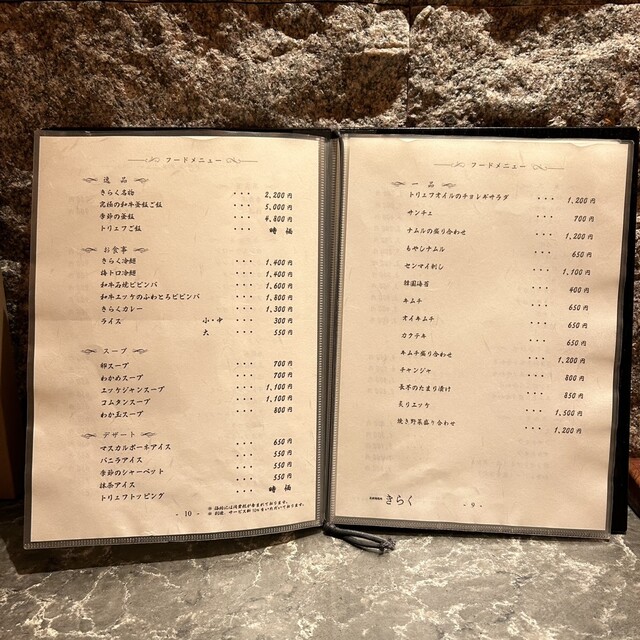 フードメニュー
逸品
きらく名物 ・・・ 2,200円
究極の和牛釜飯ご飯 ・・・ 5,000円
季節の釜飯 ・・・ 4,800円
トリュフご飯 ・・・ 時価
お食事
きらく冷麺 ・・・ 1,400円
梅トロ冷麺 ・・・ 1,400円
和牛石焼ビビンバ ・・・ 1,600円
和牛エッケのふわとろビビンバ ・・・ 1,800円
きらくカレー ・・・ 1,300円
ライス 小・中 ・・・ 300円
大 ・・・ 550円
スープ
卵スープ ・・・ 700円
わかめスープ ・・・ 700円
エッケジャンスープ ・・・ 1,100円
コムタンスープ ・・・ 1,100円
わか玉スープ ・・・ 800円
デザート
マスカルポーネアイス ・・・ 650円
バニラアイス ・・・ 550円
季節のシャーベット ・・・ 550円
抹茶アイス ・・・ 550円
トリュフトッピング ・・・ 時価
※ 価格には消費税が含まれております。
※ 別途、サービス料10%をいただいております。
- 10 -
フードメニュー
一品
トリュフオイルのチョレギサラダ ・・・ 1,200円
サンチェ ・・・ 700円
ナムルの盛り合わせ ・・・ 1,200円
もやしナムル ・・・ 650円
センマイ刺し ・・・ 1,100円
韓国海苔 ・・・ 400円
キムチ ・・・ 650円
オイキムチ ・・・ 650円
カクテキ ・・・ 650円
キムチ盛り合わせ ・・・ 1,200円
チャンジャ ・・・ 800円
長芋のたまり漬け ・・・ 850円
炙りエッケ ・・・ 1,500円
焼き野菜盛り合わせ ・・・ 1,200円
きらく
- 9 -